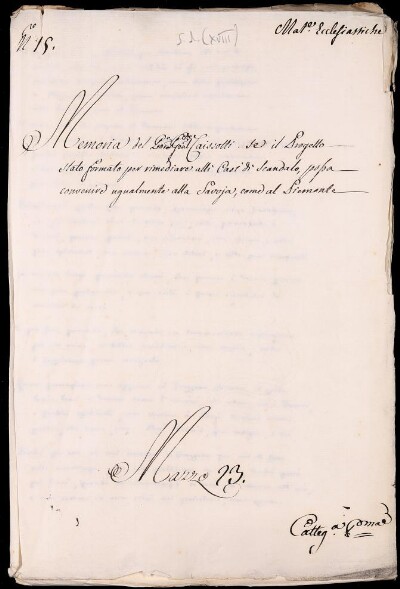 N.ro 15.
S.d. (XVIII)
Mat.e Ecclesiastiche
Memoria del Caissotti se il Progetto
stato formato per rimediare alli Casi di Scandalo, possa
convenire ugualmente alla Savoja, come al Piemonte
Mazzo 23.
Categ.a